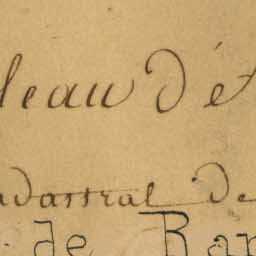 leau d'é
adastral de
de Ban